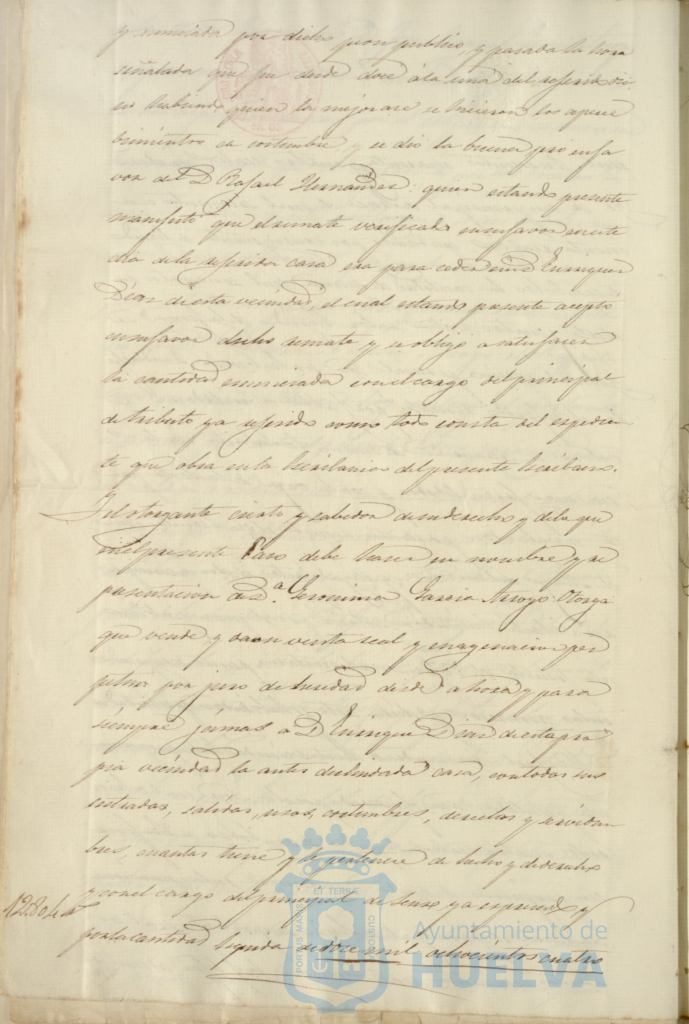 y enunciada por dicho peon publico, y pasada la hora
señalada que fue desde doce á la una del referido dia,
no habiendo quien la mejorare se hicieron los aperci
bimientos de costumbre y se dio la buena pro en fa
vor del D. Rafael Hernandez: quien estando presente
manifestó que el remate verificado en su favor en este
dia de la referida casa era para ceder en D. Enrique
Diaz de esta vecindad, el cual estando presente aceptó
en su favor dicho remate y se obligó a satisfacer
la cantidad enunciada con el cargo del principal
de tributo ya referido como todo consta del espedien
te que obra en la Escribania del presente Escribano.
Y el otorgante cierto y sabedor de su derecho y de lo que
en el presente caso debe hacer en nombre y re
presentacion de D.ª Geronima Garcia Arroyo: Otorga
que vende y da en venta real y enagenacion per
petua por juro de heredad desde ahora y para
siempre jamas a D. Enrique Diaz de esta pro
pia vecindad la antes deslindada casa, con todas sus
entradas, salidas, usos, costumbres, derechos y servidum
bres, cuantas tiene y le pertenece de hecho y de derecho
y con el cargo del principal de censo ya espresado y
12804
por la cantidad liquida de doce mil ochocientos cuatro
PORTUS MARIS ET TERRÆ CUSTODIA
Ayuntamiento de
HUELVA